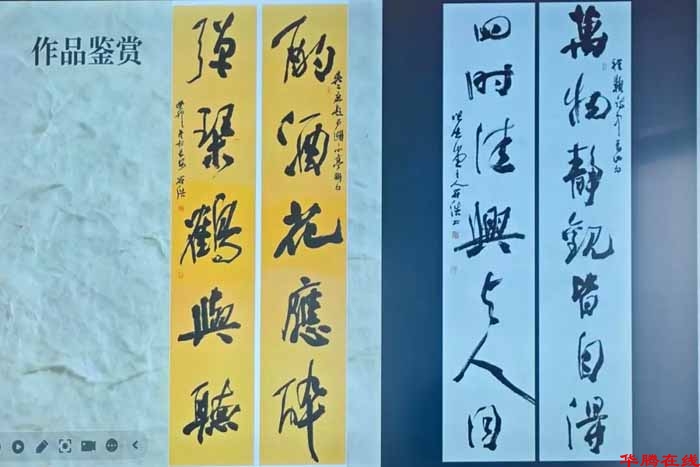 作品鉴赏
酌酒花應醉
彈琴鶴與聽
萬物靜觀皆自得
四时佳興与人同
华腾在线